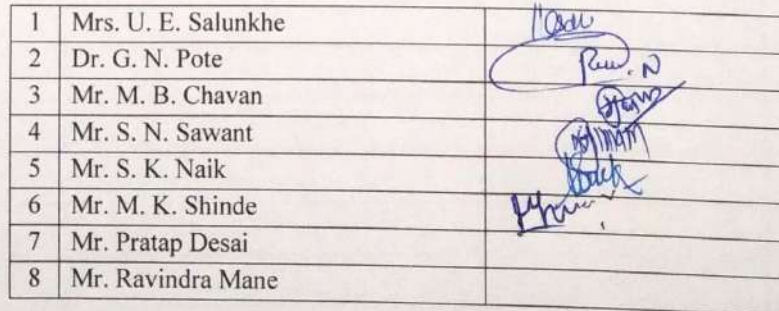 1 Mrs. U. E. Salunkhe
2 Dr. G. N. Pote
3 Mr. M. B. Chavan
4 Mr. S. N. Sawant
5 Mr. S. K. Naik
6 Mr. M. K. Shinde
7 Mr. Pratap Desai
8 Mr. Ravindra Mane